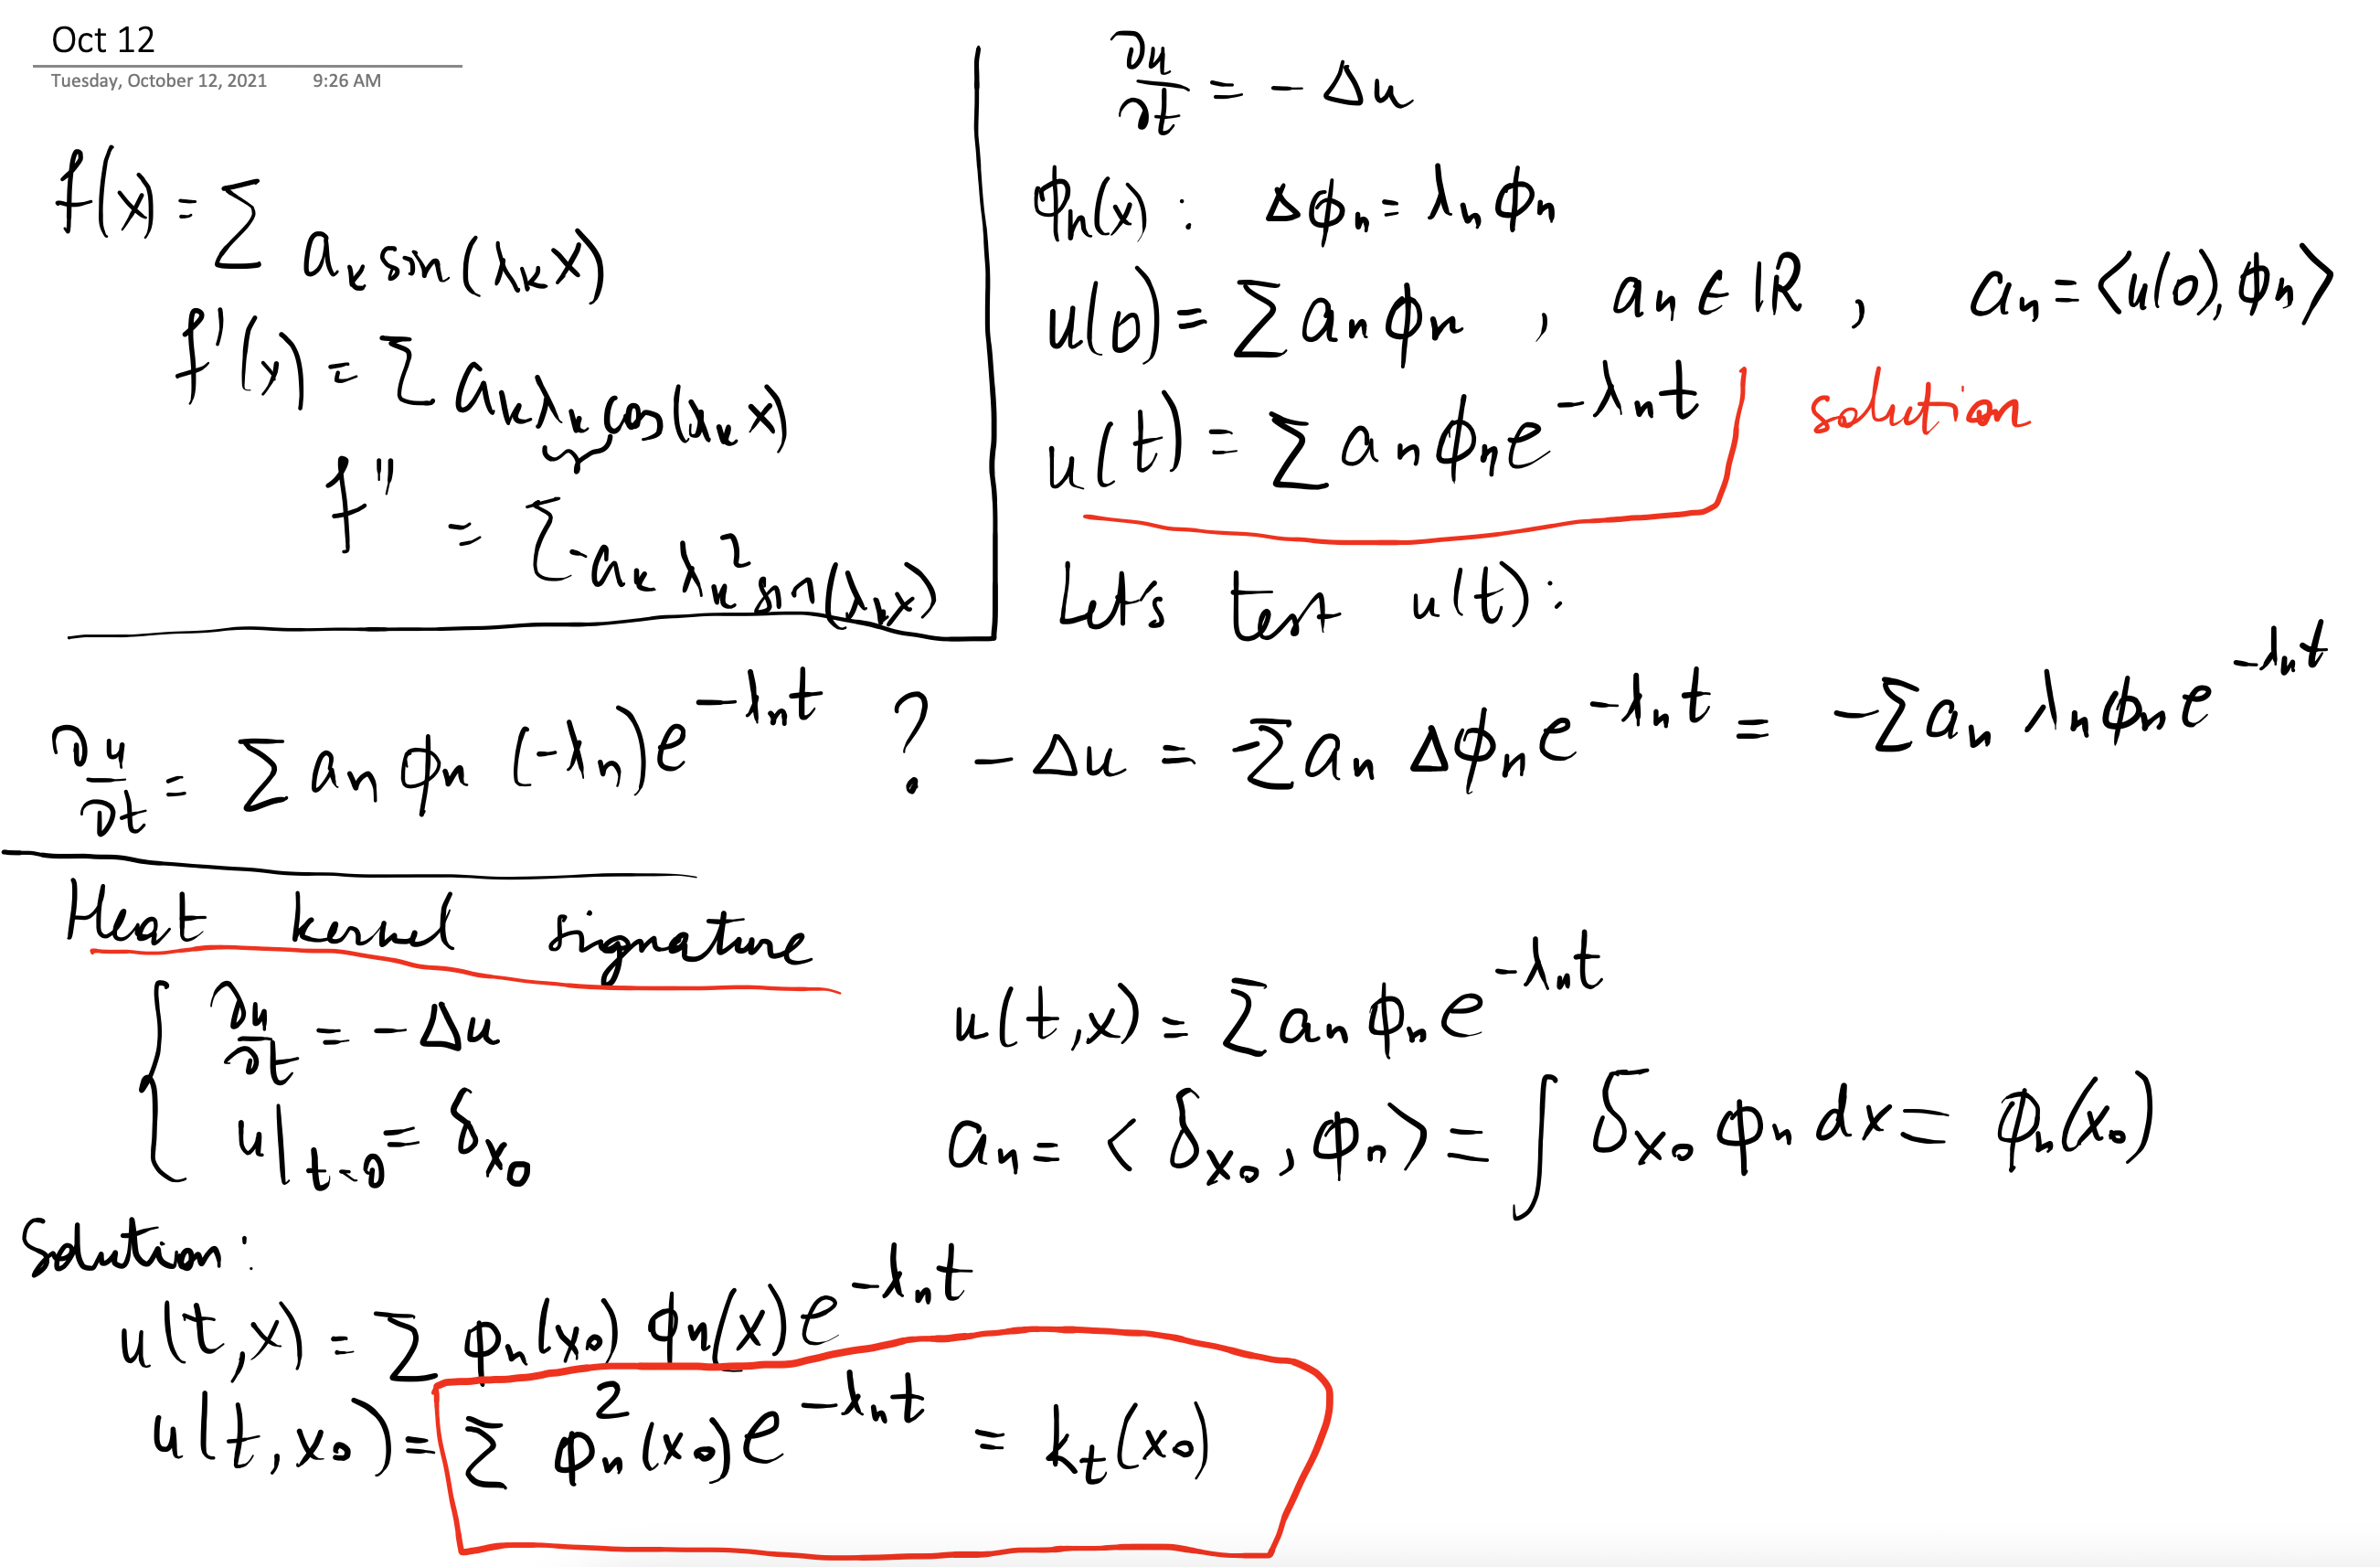 Oct 12
Tuesday, October 12, 2021 9:26 AM
f(x) = ∑ aₙ sin(λₙx)
f'(x) = ∑ aₙλₙ cos(λₙx)
f'' = ∑ -aₙ λₙ² sin(λₙx)
∂u/∂t = -Δu
ϕₙ(x) : Δϕₙ = λₙϕₙ
u(0) = ∑ aₙϕₙ , aₙ ∈ ℝ , aₙ = ⟨u(0), ϕₙ⟩
u(t) = ∑ aₙϕₙe^{-λₙt} solution
Let's test u(t) :
∂u/∂t = ∑ aₙϕₙ(-λₙ)e^{-λₙt} ? -Δu = -∑ aₙ Δϕₙ e^{-λₙt} = -∑ aₙ λₙϕₙe^{-λₙt}
Heat kernel signature
∂u/∂t = -Δu u(t,x) = ∑ aₙϕₙe^{-λₙt}
u|_{t=0} = δ_{x₀} aₙ = <δ_{x₀}, ϕₙ> = ∫ δ_{x₀} ϕₙ dx = ϕₙ(x₀)
Solution :
u(t,x) = ∑ ϕₙ(x₀) ϕₙ(x) e^{-λₙt}
u(t,x₀) = ∑ ϕₙ²(x₀)e^{-λₙt} = k_t(x₀)